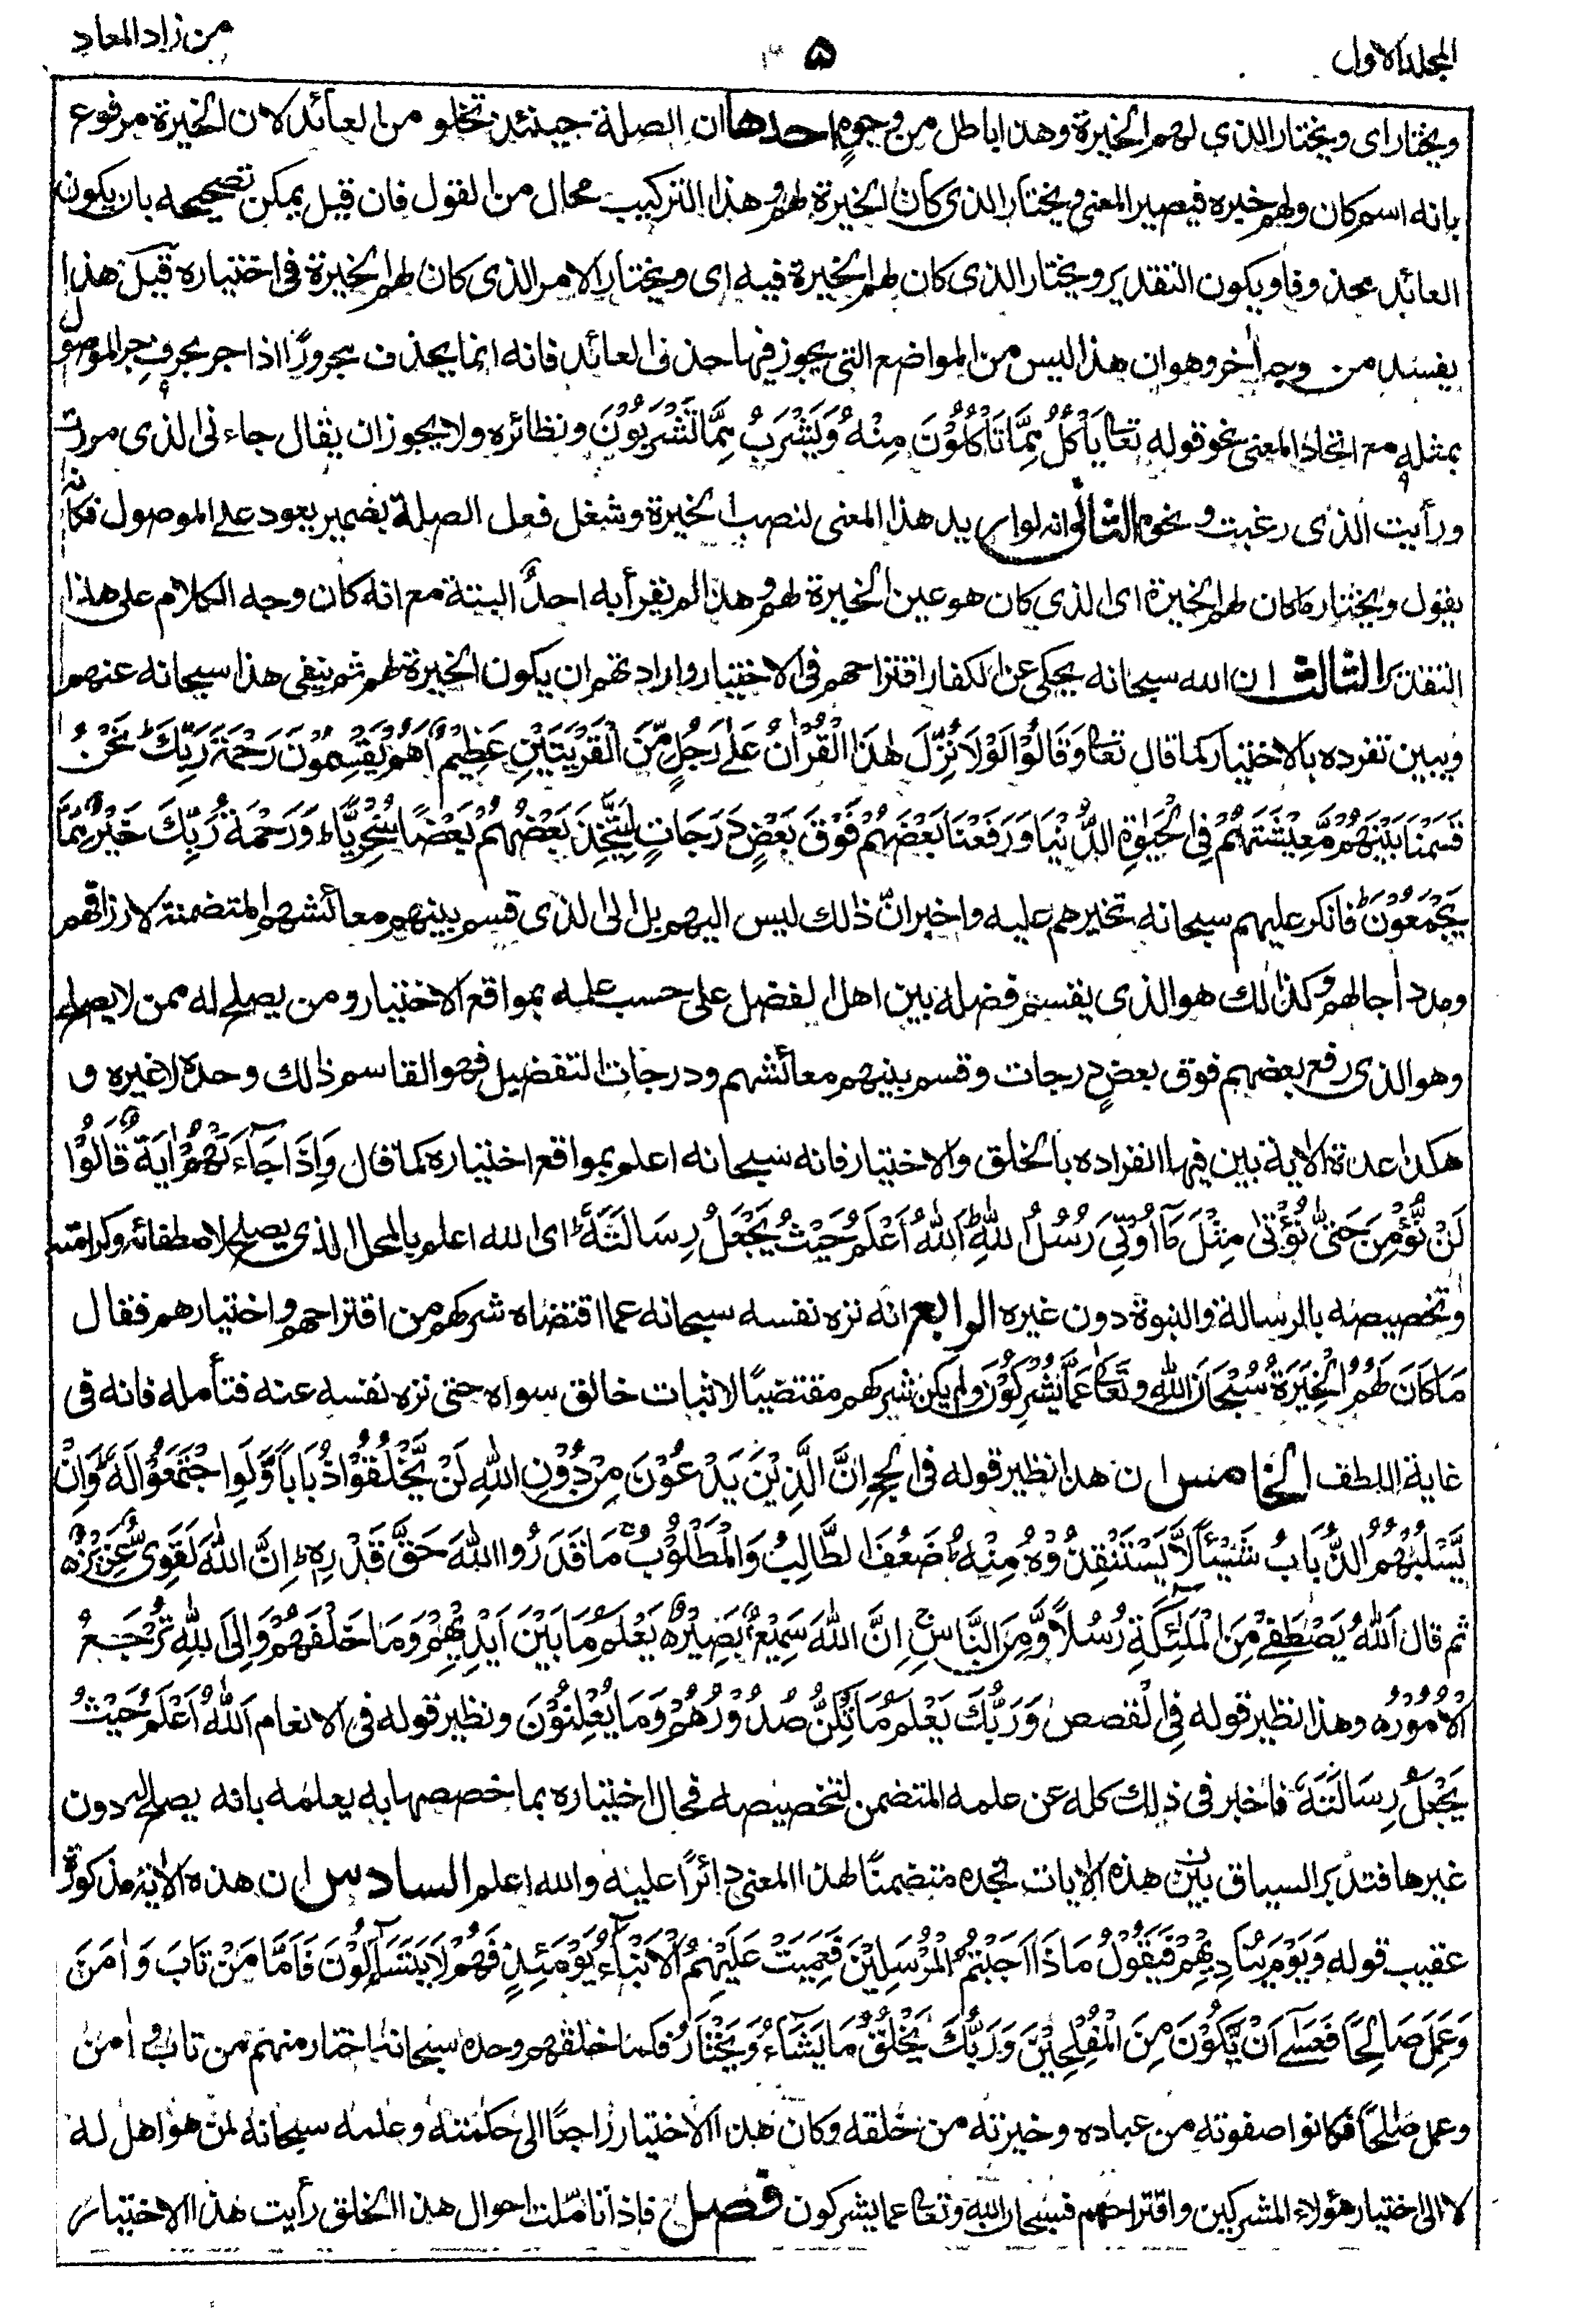 المجلد الاول ۵ من زاد المعاد
ويختار اى ويختار الذي لهم الخيرة وهذا باطل من وجوهٍ احدها ان الصلة حينئذ تخلو من العائد لان الخيرة مرفوع
بانه اسم كان ولهم خبره فيصير المعنى ويختار الذى كان الخيرة لهم وهذا التركيب محال من القول فان قيل يمكن تصحيحه بان يكون
العائد محذوفا ويكون التقدير ويختار الذى كان لهم الخيرة فيه اى ويختار الامر الذى كان لهم الخيرة فى اختياره قيل هذا
يفسد من وجه اٰخر وهو ان هذا ليس من المواضع التى يجوز فيها حذف العائد فانه انما يحذف مجرورًا اذا جر بحرفٍ جر الموصول
بمثله مع اتحاد المعنى نحو قوله تعا يَأْكُلُ مِمَّا تَأْكُلُوْنَ مِنْهُ وَيَشْرَبُ مِمَّا تَشْرَبُوْنَ ونظائره ولا يجوز ان يقال جاءنى الذى مررت
ورأيت الذى رغبت ونحوه الثانى انه لو اريد هذا المعنى لنصب الخيرة وشغل فعل الصلة بضمير يعود على الموصول فكانه
يقول ويختار ما كان لهم الخيرة اى الذى كان هو عين الخيرة لهم وهذا لم يقرأ به احدٌ البتة مع انه كان وجه الكلام على هذا
التقدير الثالث ان الله سبحانه يحكى عن الكفار اقتراحهم فى الاختيار وارادتهم ان يكون الخيرة لهم ثم ينفى هذا سبحانه عنهم
ويبين تفرده بالاختيار كما قال تعا وَقَالُوْا لَوْلَا نُزِّلَ هٰذَا الْقُرْاٰنُ عَلٰى رَجُلٍ مِّنَ الْقَرْيَتَيْنِ عَظِيْمٍ اَهُمْ يَقْسِمُوْنَ رَحْمَةَ رَبِّكَ نَحْنُ
قَسَمْنَا بَيْنَهُمْ مَّعِيْشَتَهُمْ فِى الْحَيٰوةِ الدُّنْيَا وَرَفَعْنَا بَعْضَهُمْ فَوْقَ بَعْضٍ دَرَجَاتٍ لِّيَتَّخِذَ بَعْضُهُمْ بَعْضًا سُخْرِيًّا وَرَحْمَةُ رَبِّكَ خَيْرٌ مِّمَّا
يَجْمَعُوْنَ فانكر عليهم سبحانه تخيرهم عليه واخبر انّ ذلك ليس اليهم بل الى الذى قسم بينهم معائشهم المتضمنة لارزاقهم
ومدد اجالهم وكذلك هو الذى يقسم فضله بين اهل الفضل على حسب علمه بمواقع الاختيار ومن يصلح له ممن لا يصلح
وهو الذى رفع بعضهم فوق بعضٍ درجات وقسم بينهم معائشهم ودرجات التفضيل فهو القاسم ذلك وحده لا غيره و
هكذا عدة الاية بين فيها انفراده بالخلق والاختيار فانه سبحانه اعلم بمواقع اختياره كما قال وَاِذَا جَآءَتْهُمْ اٰيَةٌ قَالُوْا
لَنْ نُّؤْمِنَ حَتّٰى نُؤْتٰى مِثْلَ مَآ اُوْتِىَ رُسُلُ اللهِ اَللهُ اَعْلَمُ حَيْثُ يَجْعَلُ رِسَالَتَهٗ اى الله اعلم بالمحل الذى يصلح لاصطفائه وكرامته
وتخصيصه بالرسالة والنبوة دون غيره الرابع انه نزه نفسه سبحانه عما اقتضاه شركهم من اقتراحهم واختيارهم فقال
مَا كَانَ لَهُمُ الْخِيَرَةُ سُبْحَانَ اللهِ وتَعَا عَمَّا يُشْرِكُوْنَ ولم يكن شركهم مقتضيًا لاثبات خالق سواه حتى نزه نفسه عنه فتأمله فانه فى
غاية اللطف الخامس ان هذا نظير قوله فى الحج اِنَّ الَّذِيْنَ يَدْعُوْنَ مِنْ دُوْنِ اللهِ لَنْ يَّخْلُقُوْا ذُبَابًا وَّلَوِ اجْتَمَعُوْا لَهٗ وَاِنْ
يَّسْلُبْهُمُ الذُّبَابُ شَيْئًا لَّا يَسْتَنْقِذُوْهُ مِنْهُ ضَعُفَ الطَّالِبُ وَالْمَطْلُوْبُ مَا قَدَرُوا اللهَ حَقَّ قَدْرِهٖ اِنَّ اللهَ لَقَوِىٌّ عَزِيْزٌ
ثم قال اَللهُ يَصْطَفِىْ مِنَ الْمَلٰٓئِكَةِ رُسُلًا وَّمِنَ النَّاسِ اِنَّ اللهَ سَمِيْعٌ بَصِيْرٌ يَعْلَمُ مَا بَيْنَ اَيْدِيْهِمْ وَمَا خَلْفَهُمْ وَاِلَى اللهِ تُرْجَعُ
الْاُمُوْرُ وهذا نظير قوله فِى القصص وَرَبُّكَ يَعْلَمُ مَا تُكِنُّ صُدُوْرُهُمْ وَمَا يُعْلِنُوْنَ ونظير قوله فى الانعام اَللهُ اَعْلَمُ حَيْثُ
يَجْعَلُ رِسَالَتَهٗ فاخبر فى ذلك كله عن علمه المتضمن لتخصيصه محال اختياره بما خصصها به يعلمه بانه يصلح له دون
غيرها فتدبر السياق بين هذه الايات تجده متضمنًا لهذا المعنى دائرًا عليه والله اعلم السادس ان هذه الاية مذكورة
عقيب قوله وَيَوْمَ يُنَادِيْهِمْ فَيَقُوْلُ مَاذَا اَجَبْتُمُ الْمُرْسَلِيْنَ فَعَمِيَتْ عَلَيْهِمُ الْاَنْبَآءُ يَوْمَئِذٍ فَهُمْ لَا يَتَسَآءَلُوْنَ فَاَمَّا مَنْ تَابَ وَاٰمَنَ
وَعَمِلَ صَالِحًا فَعَسٰى اَنْ يَّكُوْنَ مِنَ الْمُفْلِحِيْنَ وَرَبُّكَ يَخْلُقُ مَا يَشَآءُ وَيَخْتَارُ فكما خلقهم وحده سبحانه اختار منهم من تاب واٰمن
وعمل صالحًا فكانوا صفوته من عباده وخيرته من خلقه وكان هذا الاختيار راجعًا الى حكمته وعلمه سبحانه لمن هو اهل له
لا الى اختيار هؤلاء المشركين واقتراحهم فسبحان الله وتعا عما يشركون فصل فاذا تأمّلت احوال هذا الخلق رأيت هذا الاختيار